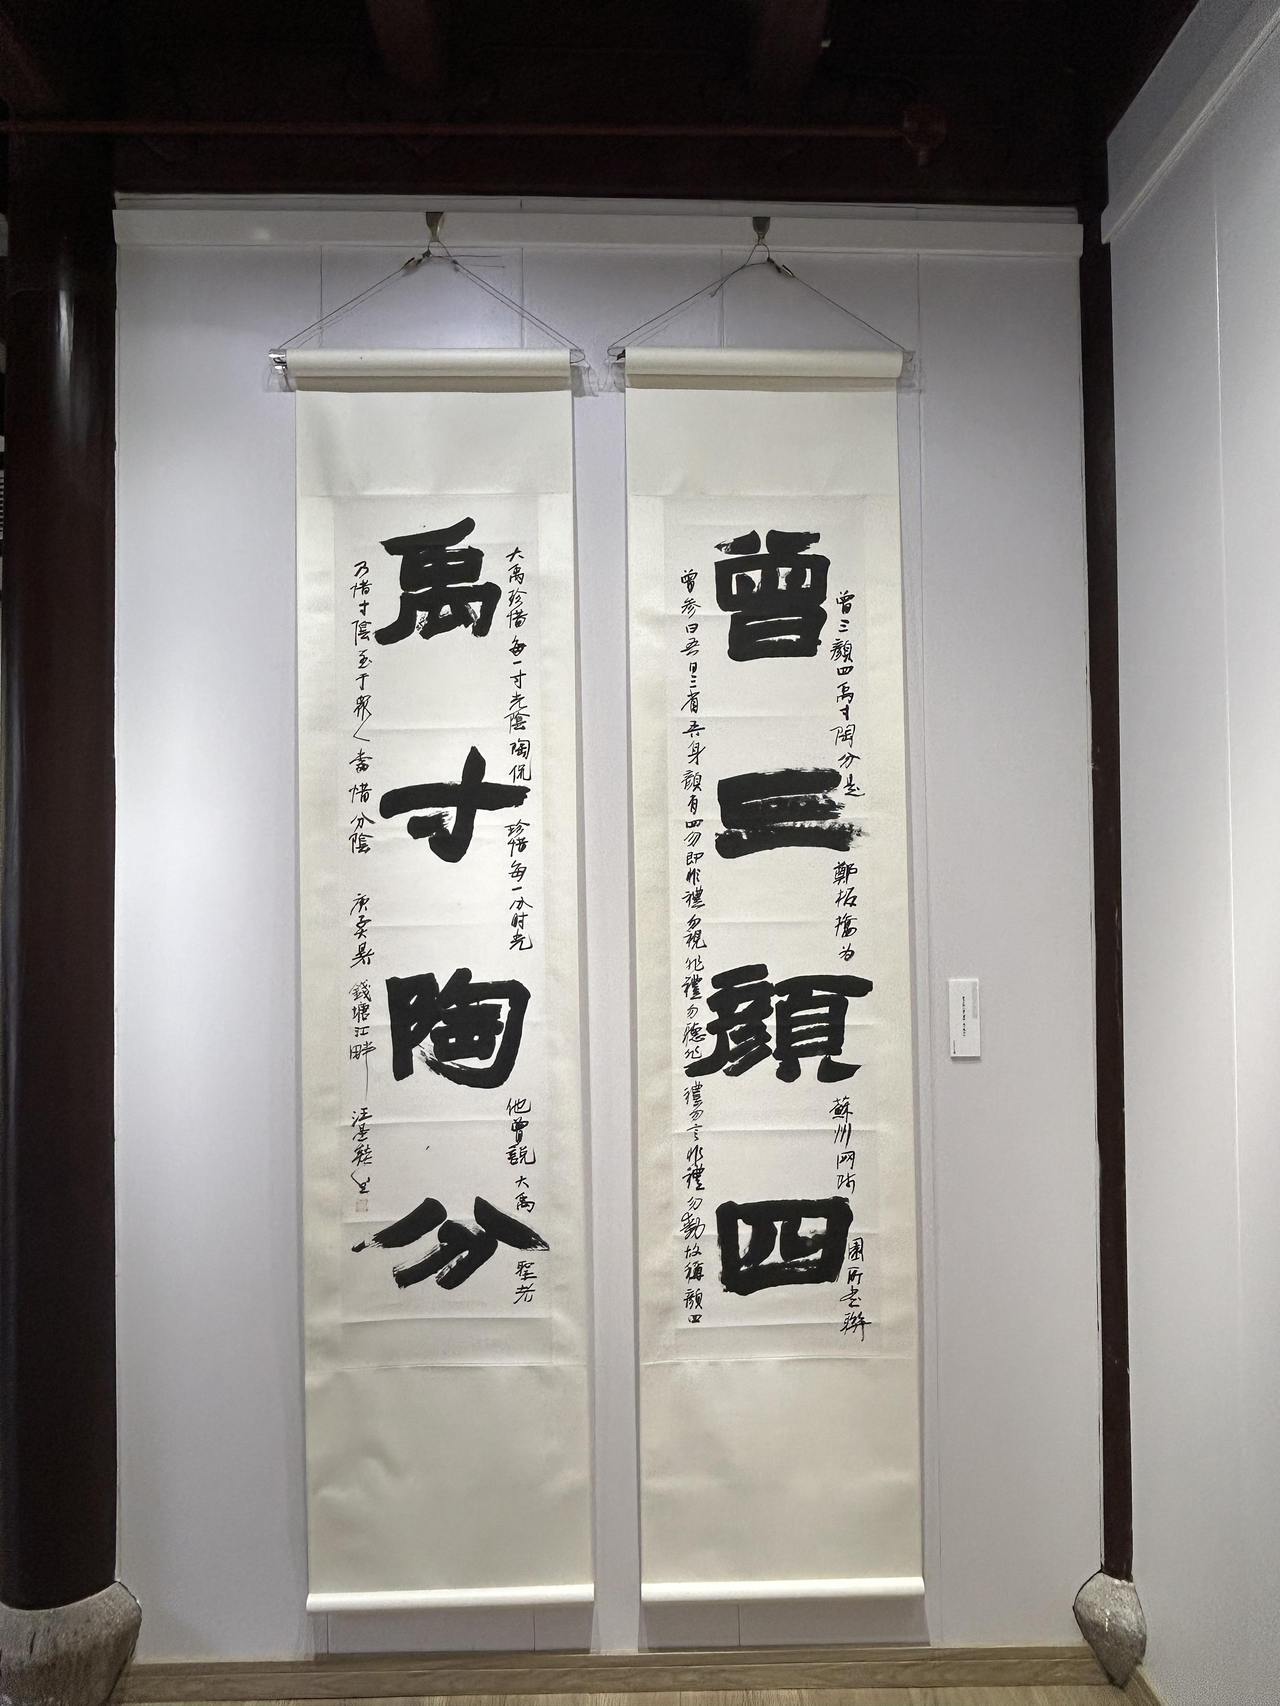 曾三顏四
曾三顏四禹寸陶分是鄭板橋為蘇州网师園所書聯
曾參曰吾日三省吾身顏有四勿即非禮勿視非禮勿聽非禮勿言非禮勿動故稱顏四
禹寸陶分
大禹珍惜每一寸光陰陶侃珍惜每一分时光他曾說大禹聖者
乃惜寸陰至于眾人當惜分陰
庚子暑錢塘江畔